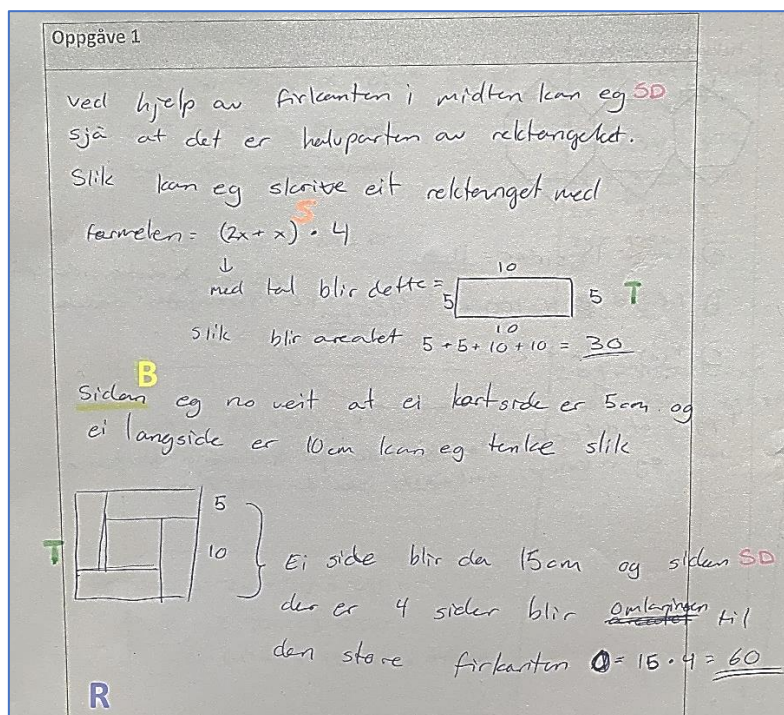 Oppgåve 1
ved hjelp av firkanten i midten kan eg SD
sjå at det er halvparten av rektangelet.
Slik kan eg skrive eit rektanget med
S
formelen = (2x + x) · 4
↓
10
med tal blir dette = 5 5 T
10
slik blir arealet 5 + 5 + 10 + 10 = 30
B
Sidan eg no veit at ei kortside er 5cm og
ei langside er 10cm kan eg tenke slik
5
T 10 Ei side blir da 15cm og siden SD
der er 4 sider blir omkringen til
den store firkanten O = 15 · 4 = 60
R